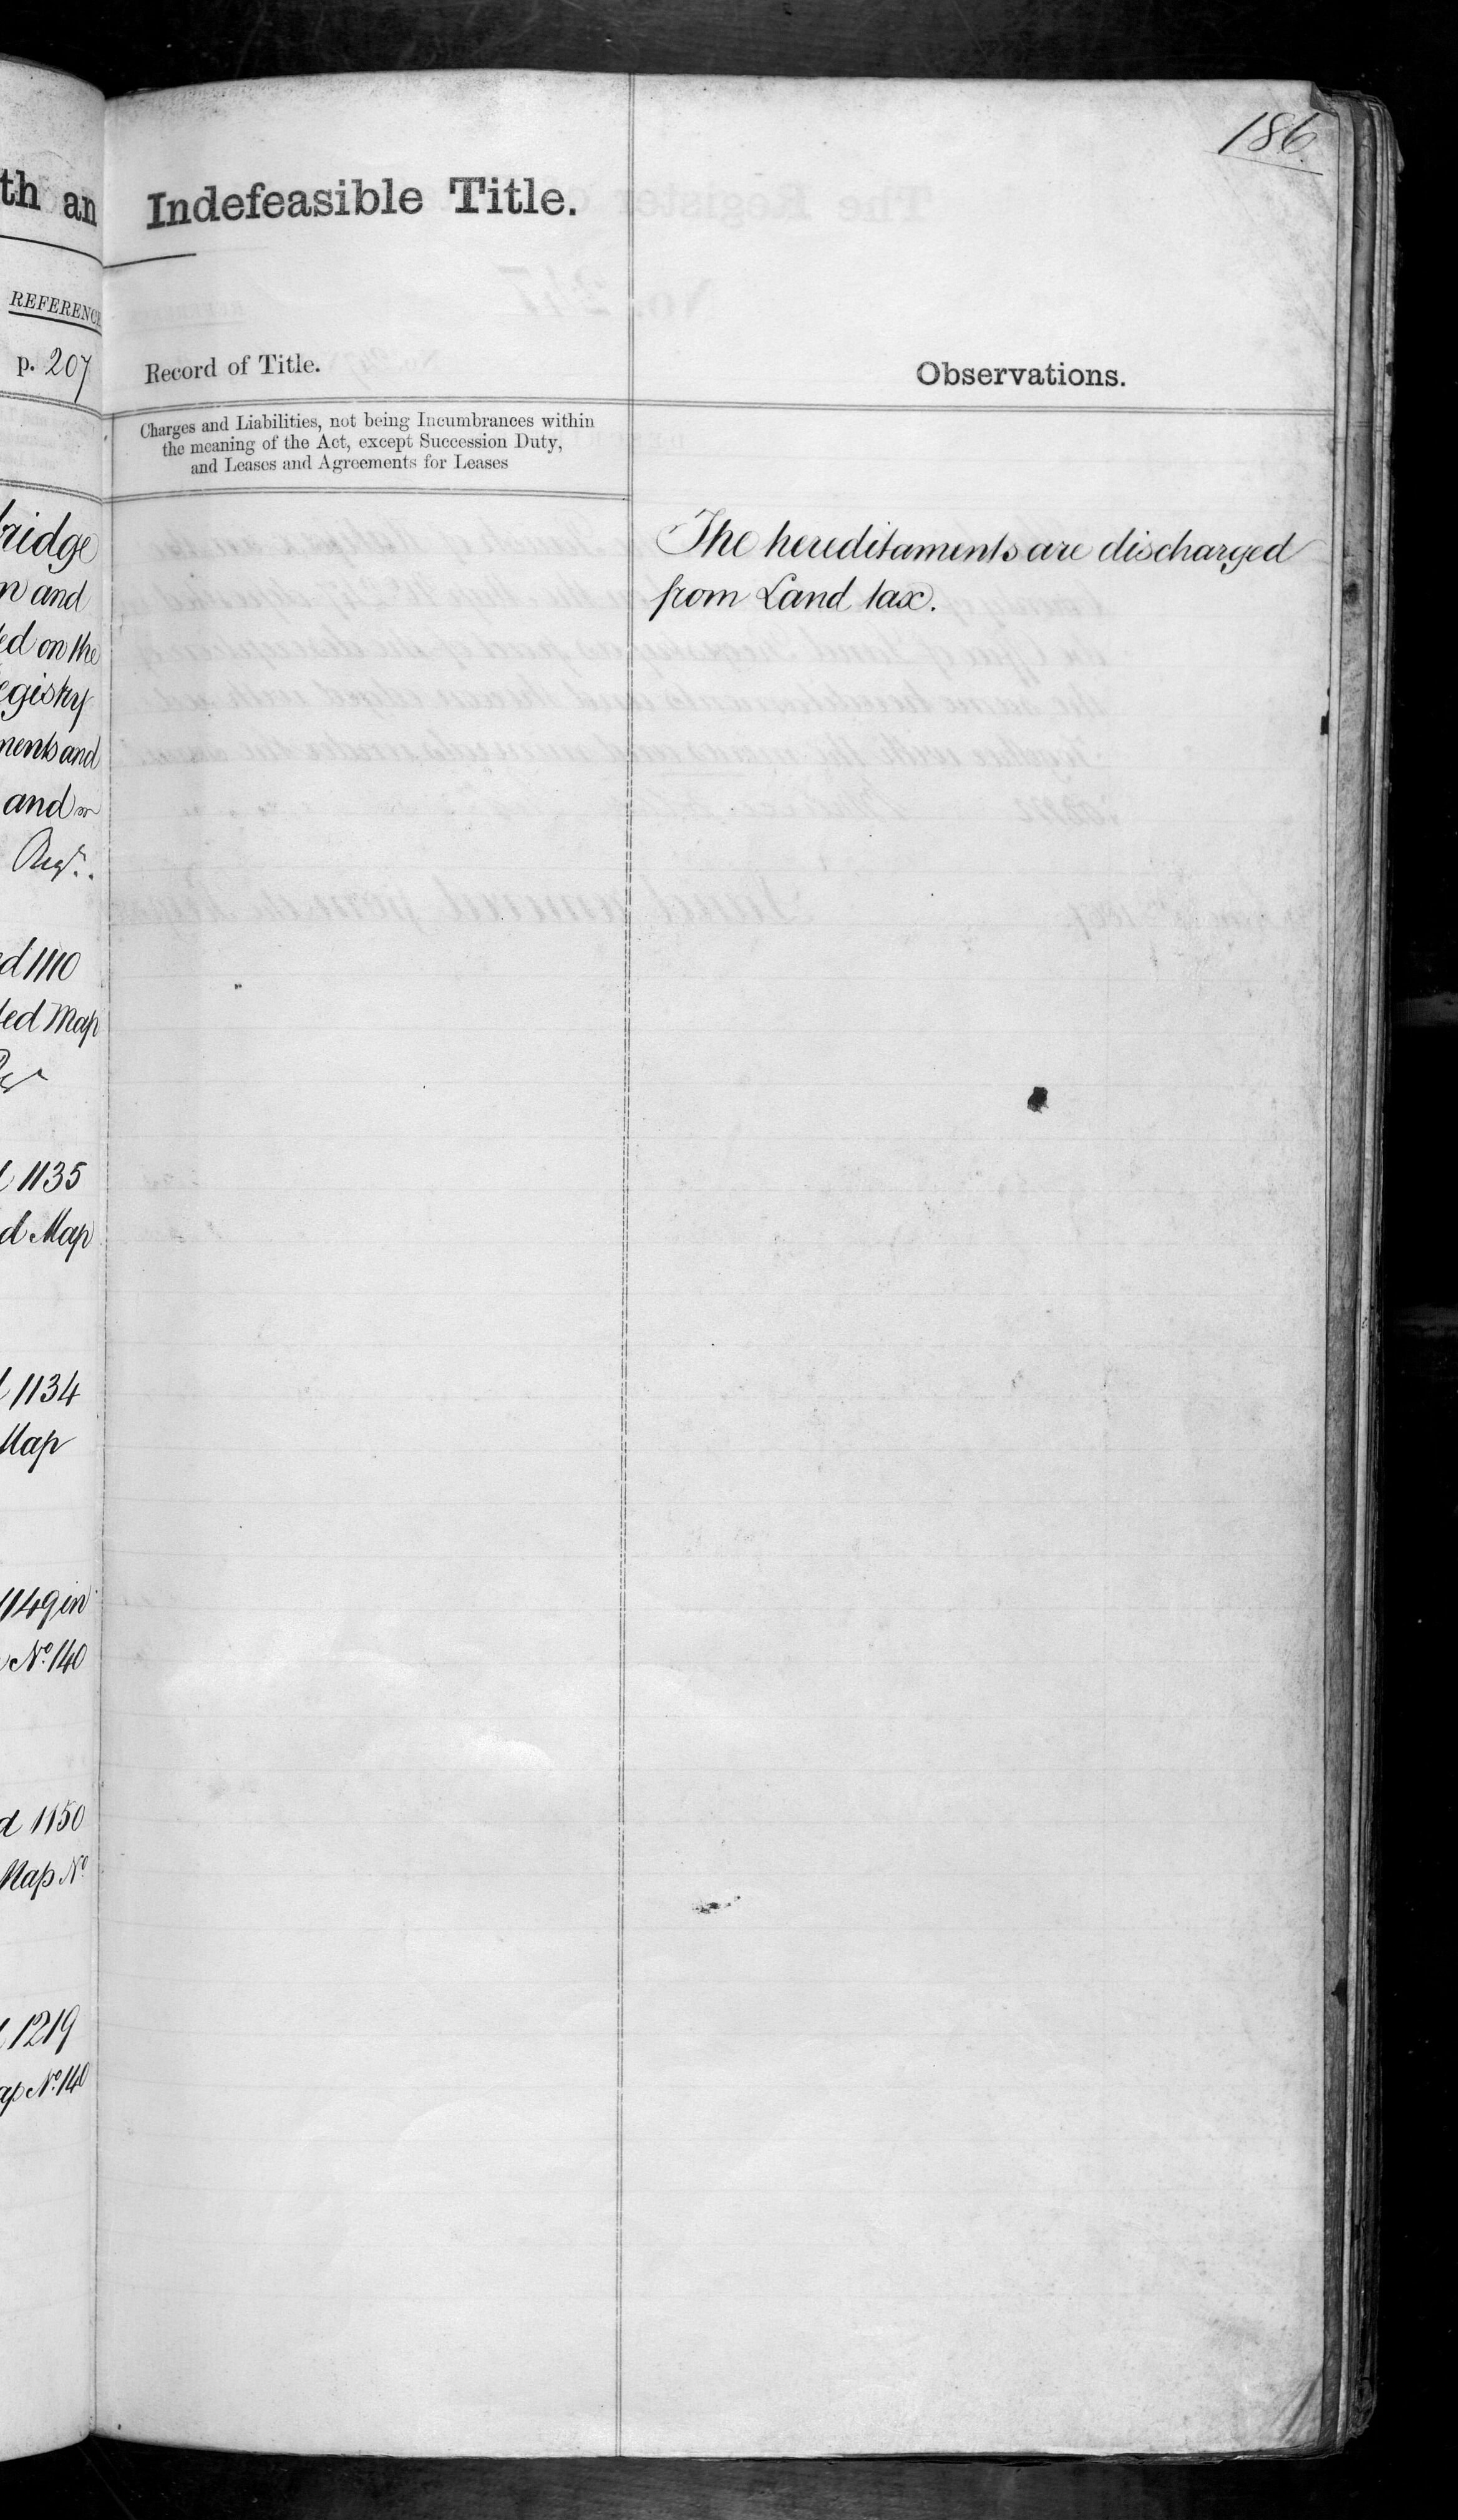 186.
th an
REFERENCE
p. 207
ridge
n and
ed on the
egistry
ments and
and
Regr.
d 1110
ted Map
1135
d Map
1134
Map
1149 in
No. 140
d 1150
Map No
1219
ap No. 140
Indefeasible Title.
Record of Title.
Charges and Liabilities, not being Incumbrances within
the meaning of the Act, except Succession Duty,
and Leases and Agreements for Leases
Observations.
The hereditaments are discharged
from Land tax.